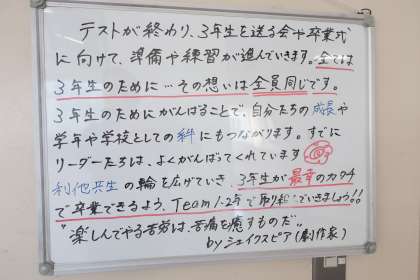 テストが終わり、3年生を送る会や卒業式
に向けて、準備や練習が進んでいきます。全ては
3年生のために…その想いは全員同じです。
3年生のためにがんばることで、自分たちの成長や
学年や学校としての絆にもつながります。すでに
リーダーたちは、よくがんばってくれています
利他共生の輪を広げていき、3年生が最幸のカタチ
で卒業できるよう、Team1・2年で取り組んでいきましょう!!
"楽しんでやる苦労は、苦痛を癒すものだ"
by シェイクスピア(劇作家)